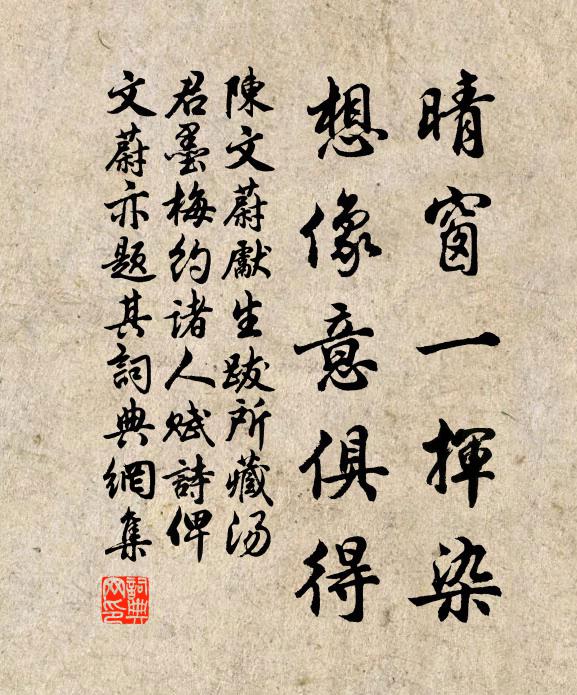 晴窗一揮染
想像意俱得
陳文蔚獻生跋所藏汤
君墨梅約諸人賦詩俾
文蔚亦題其詞典網集
詞典
文印